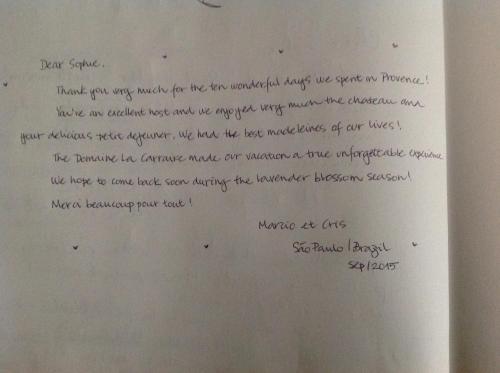 Dear Sophie,
Thank you very much for the ten wonderful days we spent in Provence!
You're an excellent host and we enjoyed very much the chateau and
your delicious petit dejeuner. We had the best madeleines of our lives!
The Domaine La Carraire made our vacation a true unforgettable experience
We hope to come back soon during the lavender blossom season!
Merci beaucoup pour tout!
Marcio et Cris
São Paulo/Brazil
Sep/2015